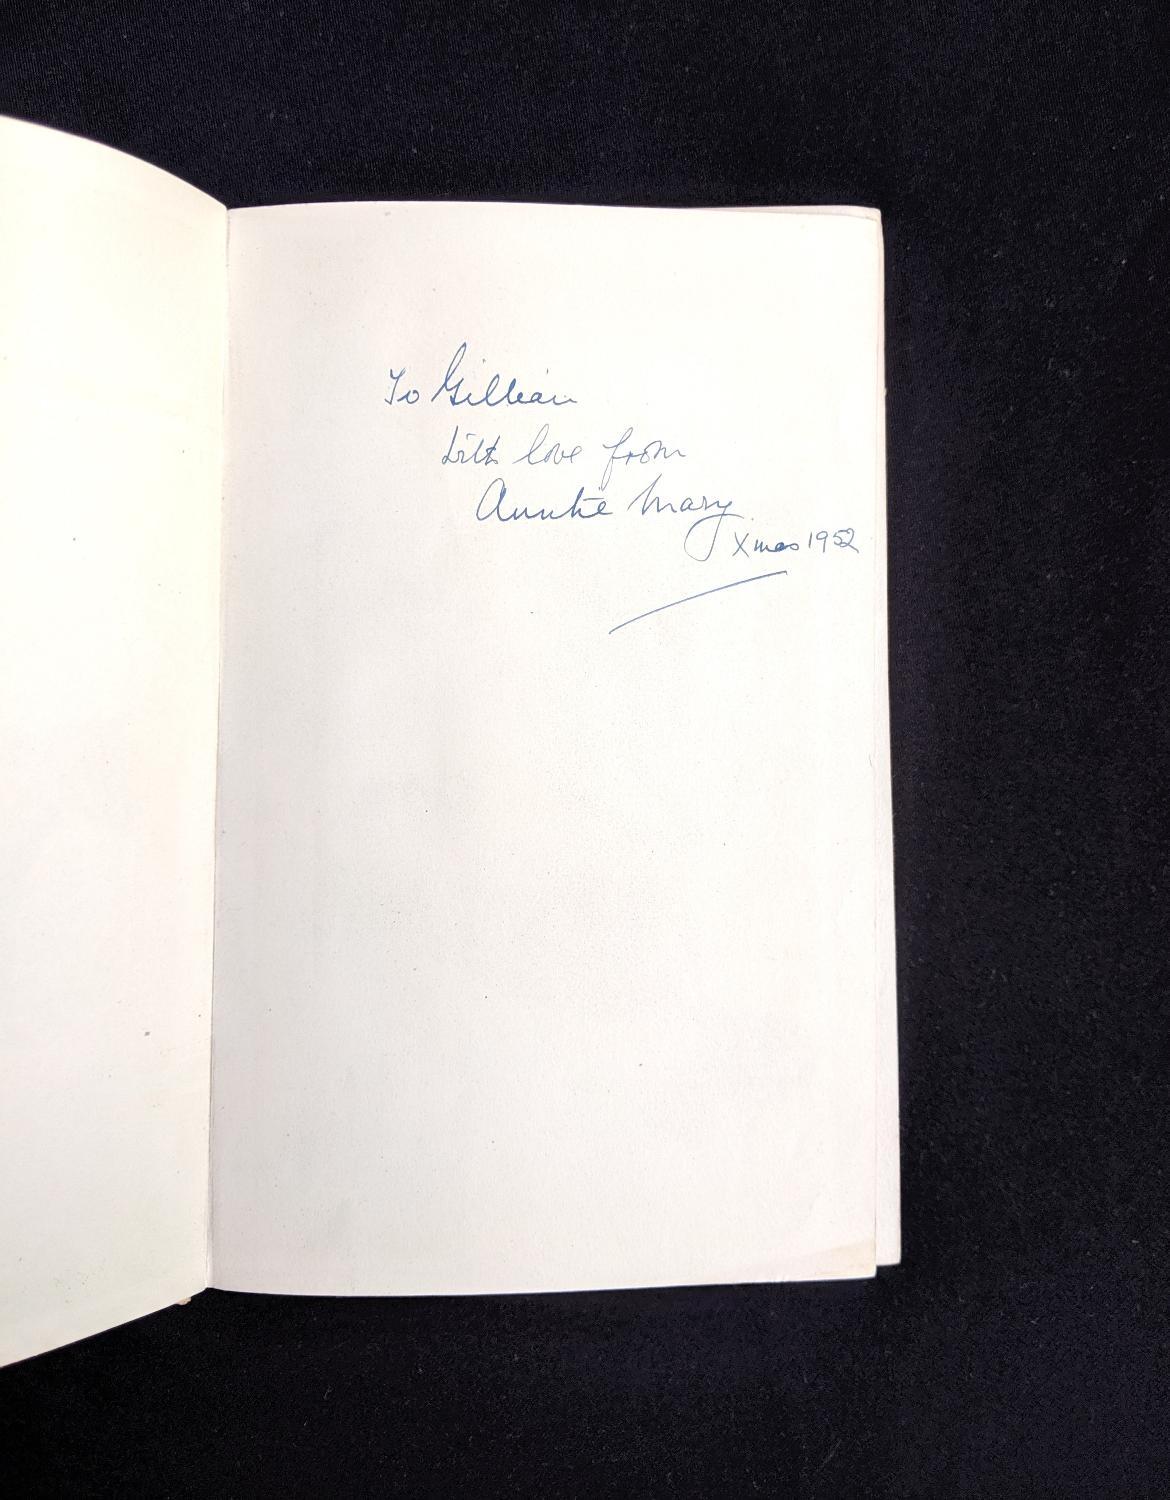 To Gillian
with love from
Auntie Mary
Xmas 1952